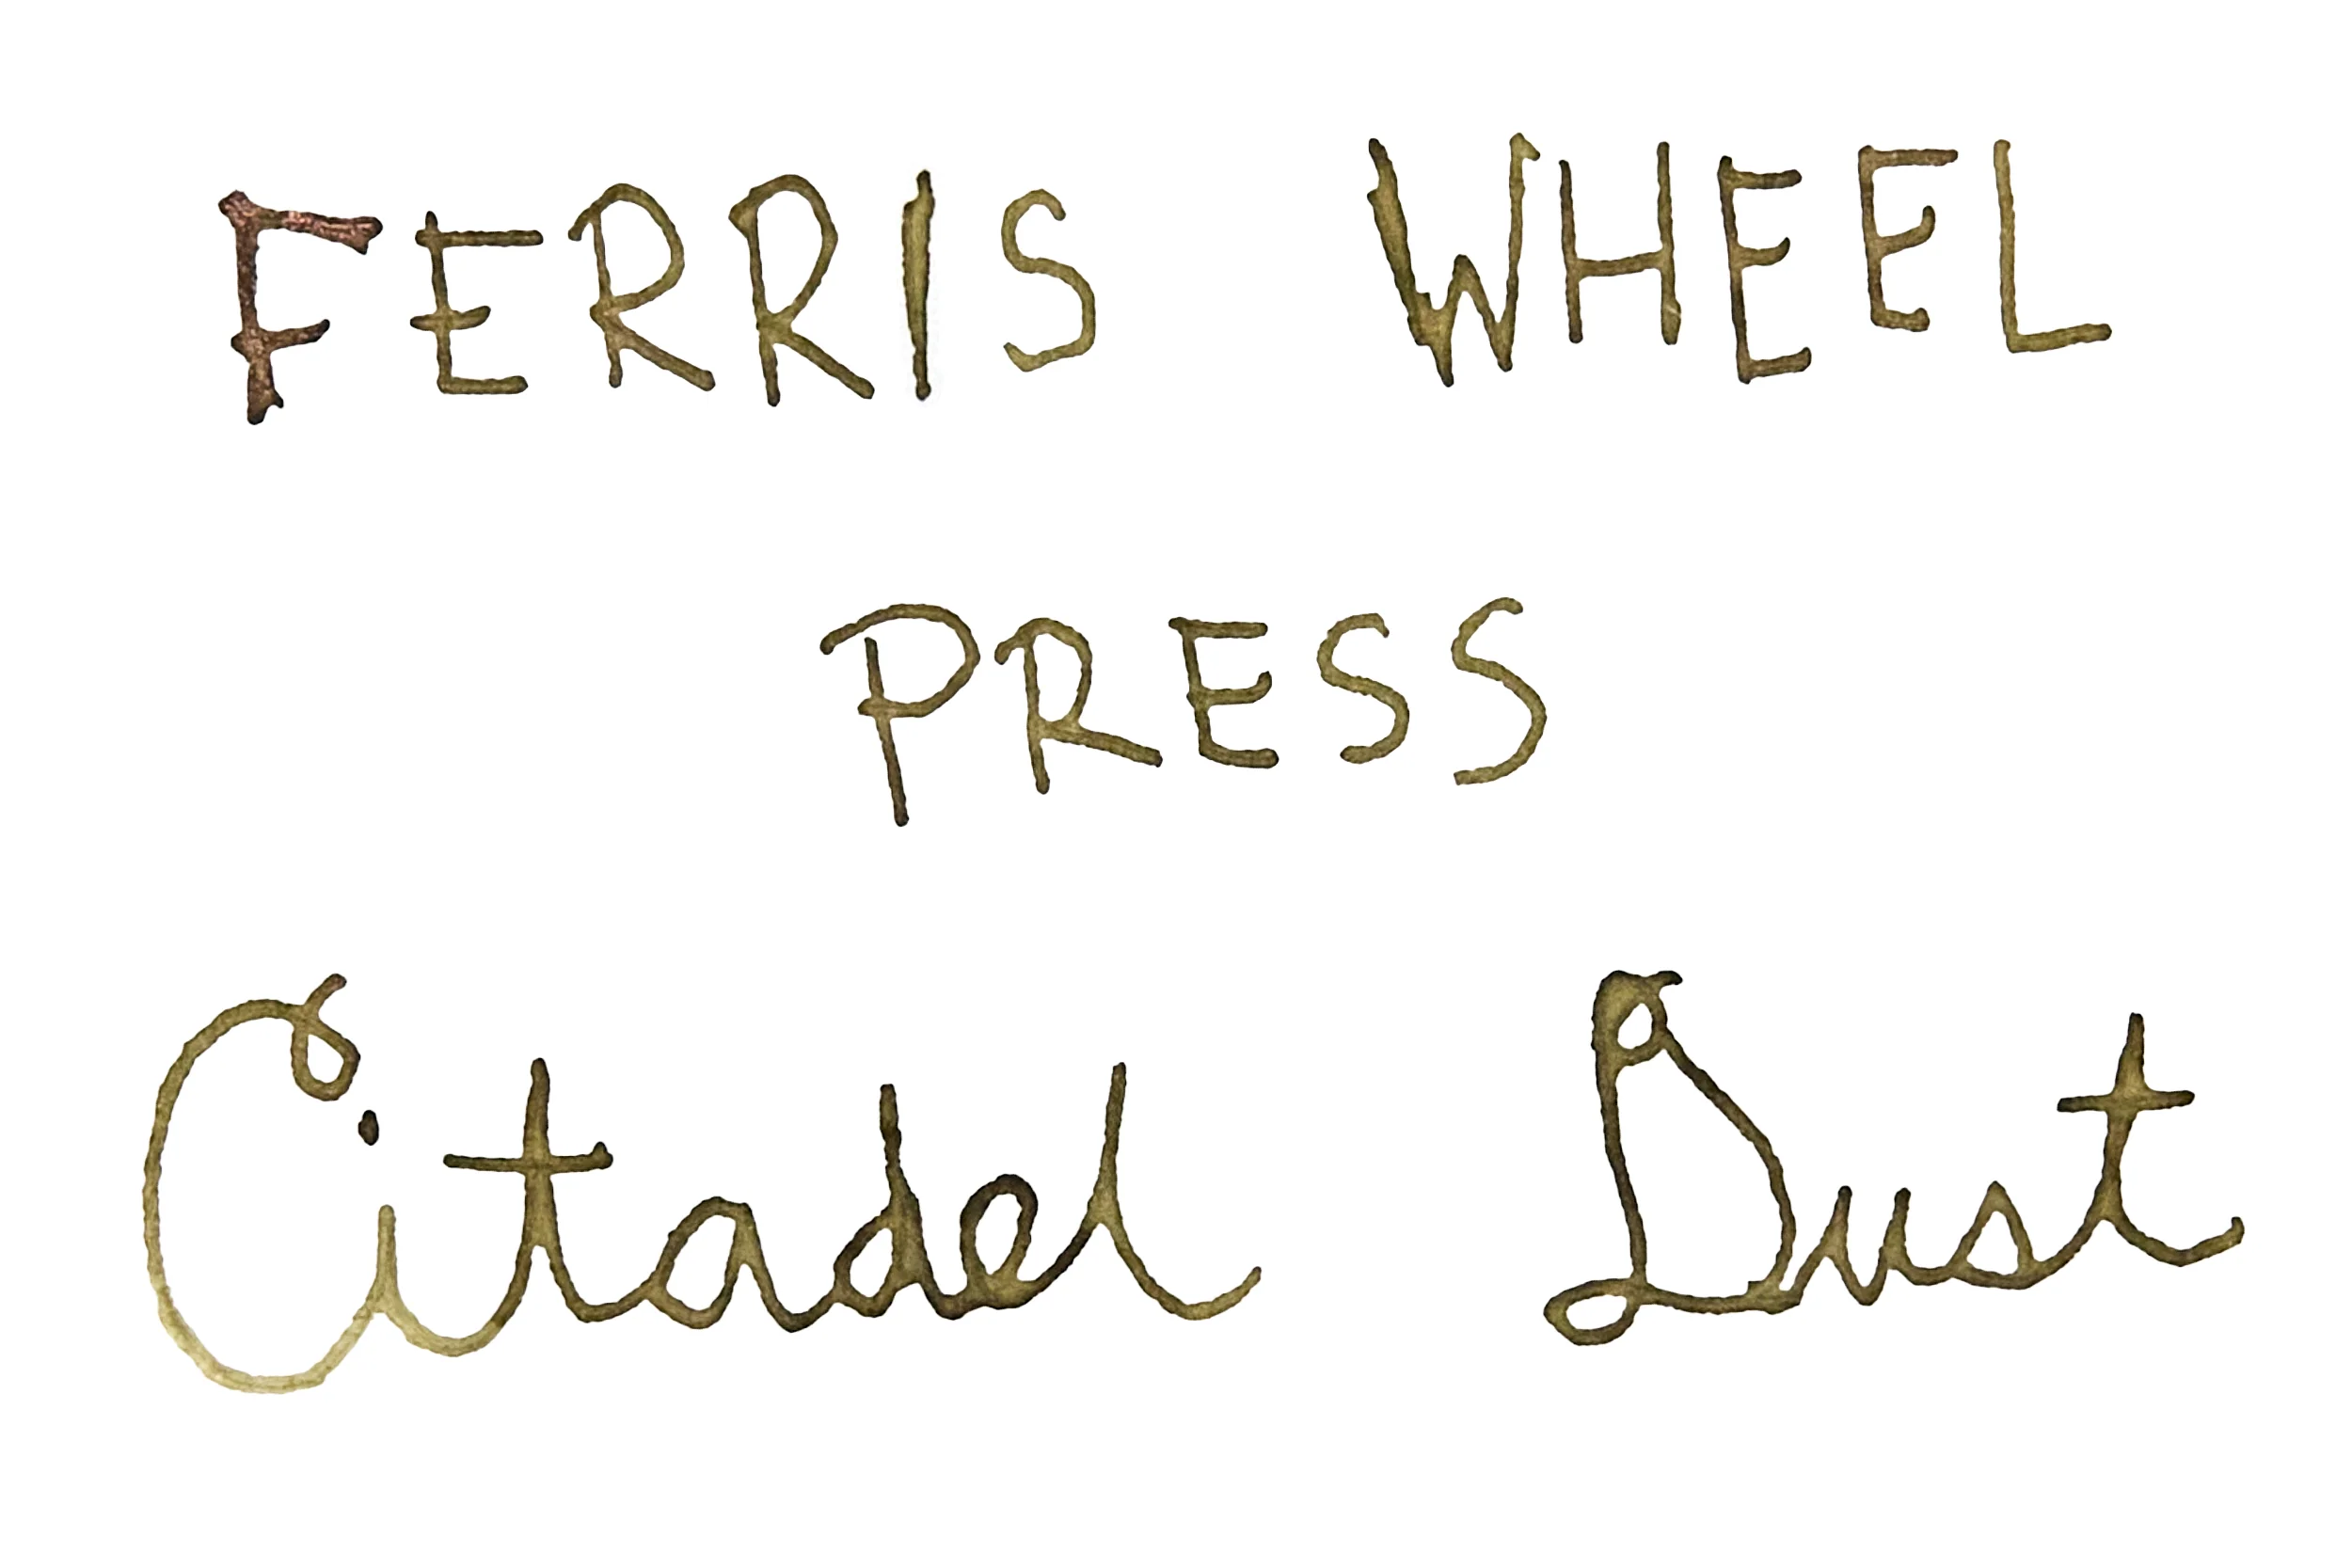 FERRIS WHEEL
PRESS
Citadel Dust